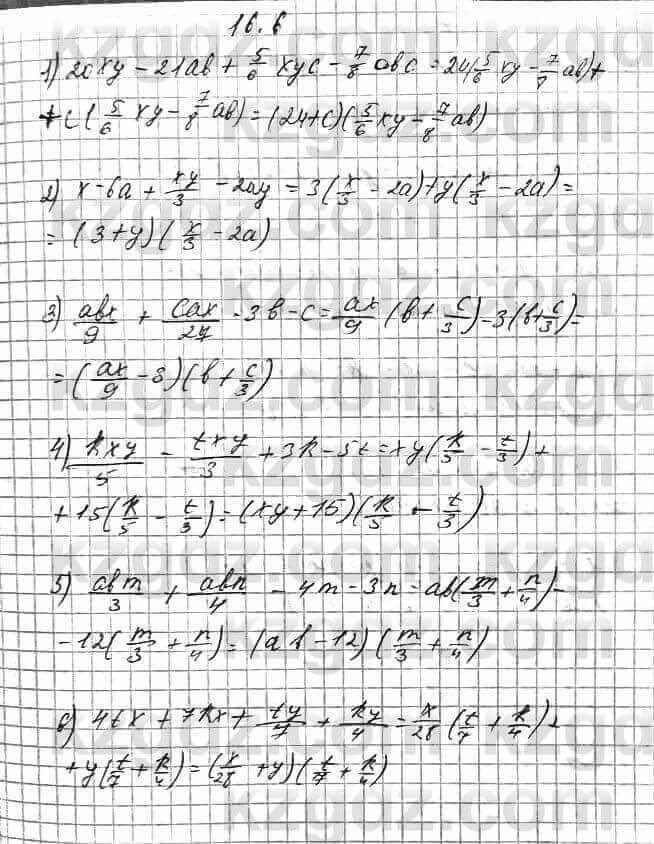 16.6
1) 20xy - 21ab + 5/6 xyc - 7/8 abc = 24(5/6 xy - 7/8 ab) +
+ c(5/6 xy - 7/8 ab) = (24+c)(5/6 xy - 7/8 ab)
2) x - 6a + xy/3 - 2ay = 3(x/3 - 2a) + y(x/3 - 2a) =
= (3+y)(x/3 - 2a)
3) abx/9 + cax/27 - 3b - c = ax/9 (b + c/3) - 3(b + c/3) =
= (ax/9 - 3)(b + c/3)
4) kxy/5 - txy/3 + 3k - 5t = xy(k/5 - t/3) +
+ 15(k/5 - t/3) = (xy + 15)(k/5 - t/3)
5) abm/3 + abn/4 - 4m - 3n = ab(m/3 + n/4) -
- 12(m/3 + n/4) = (ab - 12)(m/3 + n/4)
6) 4tx + 7kx + ty/7 + ky/4 = x/28 (t/7 + k/4) +
+ y(t/7 + k/4) = (x/28 + y)(t/7 + k/4)
kzgdz.com